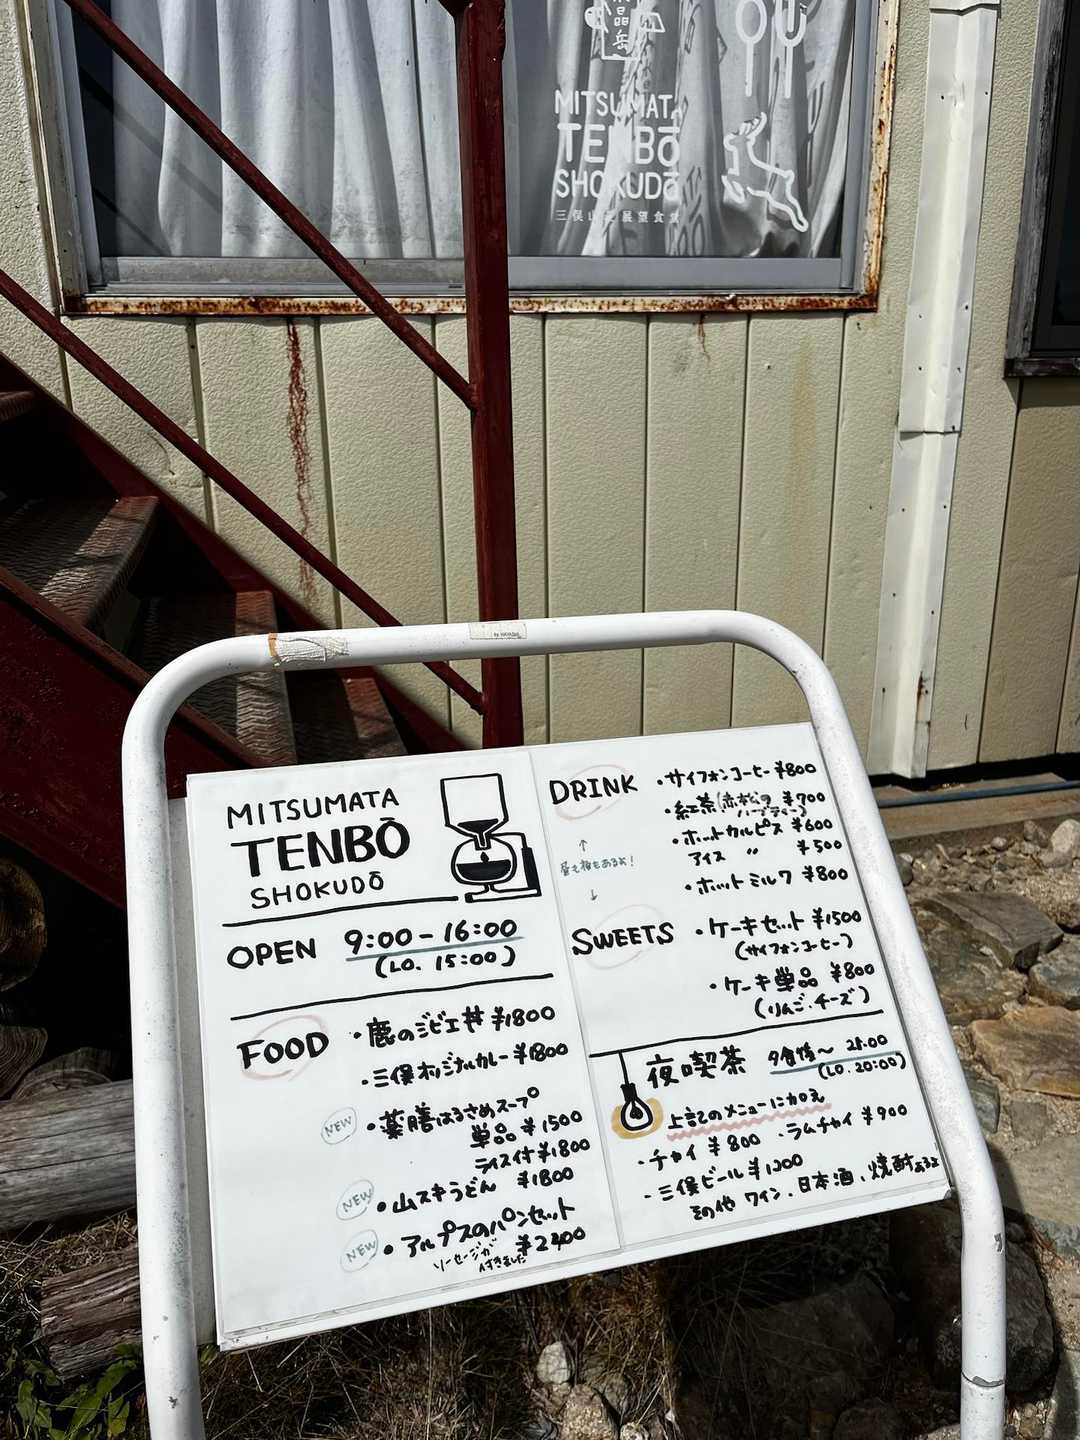 MITSUMATA
TENBŌ
SHOKUDŌ
MITSUMATA
TENBŌ
SHOKUDŌ
OPEN 9:00-16:00
(LO. 15:00)
FOOD
・鹿のジビエ丼 ¥1800
・三俣オリジナルカレー ¥1800
NEW ・薬膳はるさめスープ
単品 ¥1500
ライス付 ¥1800
NEW ・山スキうどん ¥1800
NEW ・アルプスのパンセット
¥2400
ソーセージが
付きました
DRINK
・サイフォンコーヒー ¥800
・紅茶(赤松の ¥700
ハーブティー)
・ホットカルピス ¥600
アイス 〃 ¥500
・ホットミルク ¥800
↑
昼も夜もあるよ!
↓
SWEETS
・ケーキセット ¥1500
(サイフォンコーヒー)
・ケーキ単品 ¥800
(りんご・チーズ)
夜喫茶 夕食後〜 21:00
(LO. 20:00)
上記のメニューに加え
・チャイ ¥800 ・ラムチャイ ¥900
・三俣ビール ¥1200
その他 ワイン、日本酒、焼酎あるよ